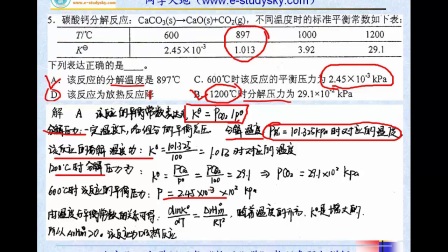 www.e-studysky.com
5．碳酸钙分解反应：CaCO₃(s)→CaO(s)+CO₂(g)，不同温度时的标准平衡常数如下表：
T/℃ 600 897 1000 1200
K⊖ 2.45×10⁻³ 1.013 3.92 29.1
下列表达正确的是____。
A. 该反应的分解温度是 897℃ C. 600℃时该反应的平衡压力为 2.45×10⁻³ kPa
D. 该反应为放热反应 B. 1200℃时分解压力为 29.1×10⁻² kPa
解 A 该反应的平衡常数表达式 K⊖= Pco₂/p⊖
分解压力：一定温度下, 分解温度 Pco₂=101.325kPa时对应的温度
该反应的分解温度为: K⊖= 101.325/100 = 1.013 时对应的温度
1200℃时分解压力: K⊖= Pco₂/p⊖ = Pco₂/100 = 29.1 ⇒ Pco₂=29.1×10² kPa
600℃时该反应的平衡压力: P = 2.45×10⁻³×10² kPa
由温度与平衡常数的关系可得: dlnK⊖/dT = ΔrH⊖m/RT², 随着温度的升高, K⊖是增大的.
所以ΔrH⊖m>0.